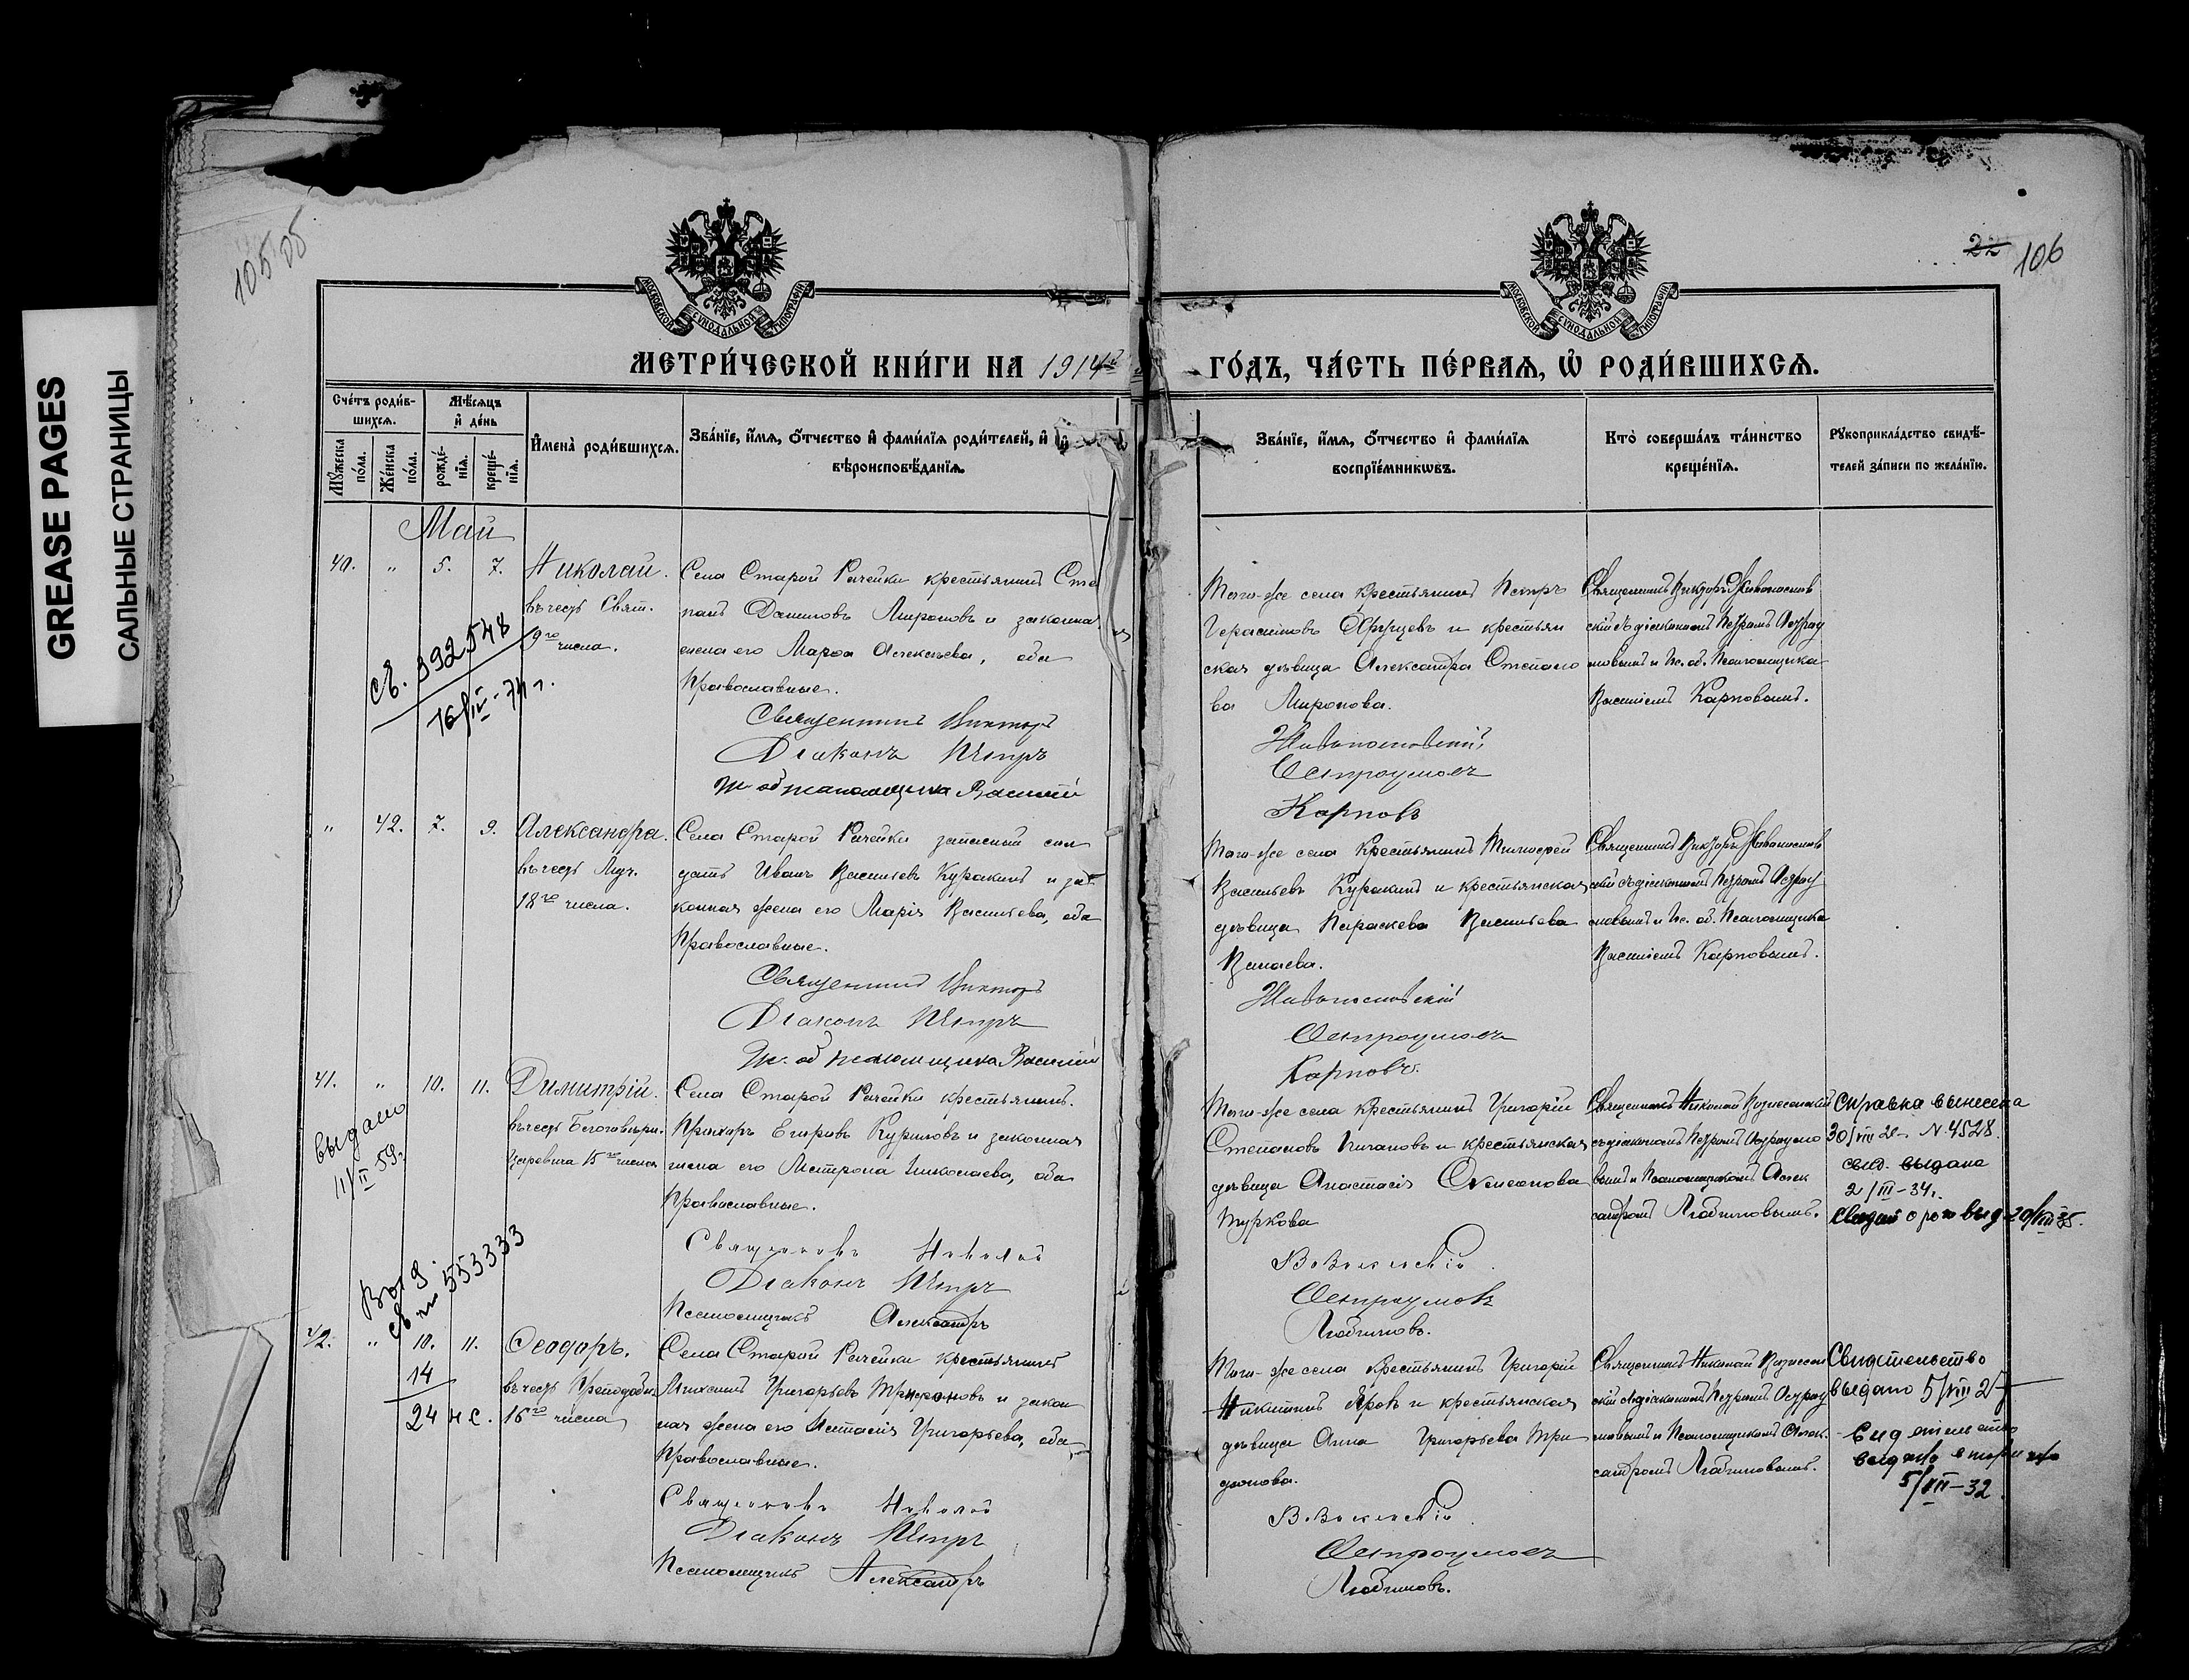 GREASE PAGES
САЛЬНЫЕ СТРАНИЦЫ
105 об
22 106
МОСКОВСКОЙ СѴНОДАЛЬНОЙ ТИПОГРАФІИ
МОСКОВСКОЙ СѴНОДАЛЬНОЙ ТИПОГРАФІИ
МЕТРИ́ЧЕСКОЙ КНИ́ГИ НА 1914й ГО́ДЪ, ЧА́СТЬ ПЕ́РВАѦ, Ѡ҆ РОДИ́ВШИХСѦ.
Сче́тъ роди́в-
шихсѧ.
Мꙋ́жеска по́ла.
Же́нска по́ла.
Мѣ́сѧцъ
и҆ де́нь
рожде́-
нїѧ.
креще́-
нїѧ.
И҆мена̀ роди́вшихсѧ.
Зва́нїе, и҆́мѧ, ѻ҆́тчество и҆ фами́лїѧ роди́телей, и҆
вѣроисповѣ́данїѧ.
Зва́нїе, и҆́мѧ, ѻ҆́тчество и҆ фами́лїѧ
воспрїе́мникѡвъ.
Кто̀ соверша́лъ та́инство
креще́нїѧ.
Рꙋкоприкла́дство свидѣ́-
телей за́писи по жела́нїю.
Май
40. " 5. 7. Николай.
въ честь Свят.
9го числа.
св. 392548
16/IV-74 г.
Села Старой Рачейки крестьянинъ Сте
панъ Даниловъ Мироновъ и законная
жена его Марѳа Алексѣева, оба
Православные.
Священникъ Викторъ
Діаконъ Петръ
И. об псаломщика Василій
Того-же села крестьянинъ Петръ
Герасимовъ и крестьян
ская дѣвица Александра Степано
ва Миронова.
Остроумовъ
Карповъ
Священникъ Викторъ
скій съ діакономъ Петромъ Остроу
мовымъ и Ис. об. Псаломщика
Василіемъ Карповымъ.
" 42. 7. 9. Александра.
въ честь Муч.
18го числа.
Села Старой Рачейки запасный сол
датъ Иванъ Васильевъ Куракинъ и за
конная жена его Марія Васильева, оба
Православные.
Священникъ Викторъ
Діаконъ Петръ
И. об псаломщика Василій
Того-же села крестьянинъ Тимофей
Васильевъ Куракинъ и крестьянская
дѣвица Параскева Васильева
Остроумовъ
Карповъ.
Священникъ Викторъ
скій съ діакономъ Петромъ Остроу
мовымъ и Ис. об. Псаломщика
Василіемъ Карповымъ.
41. " 10. 11. Димитрій.
въ честь Благовѣрн.
Царевича 15го числа
выдано
11/II 59.
Села Старой Рачейки крестьянинъ
Прохоръ Егоровъ Куриловъ и законная
жена его Матрона Николаева, оба
Православные.
Священникъ Николай
Діаконъ Петръ
Псаломщикъ Александръ
Того-же села крестьянинъ Григорій
Степановъ и крестьянская
дѣвица Анастасія Симеонова
Туркова
Вознесенскій
Остроумовъ
Любимовъ.
Священникъ Николай Вознесенскій
съ діакономъ Петромъ Остроумо
вымъ и Псаломщикомъ Алек
сандромъ Любимовымъ.
справка вынесена
30/VIII N. 4528.
свид. выдана
2/III-34 г.
42. " 10. 11. Ѳеодоръ.
въ честь Преподобн.
16го числа
Выд.
св 553333
14
24 н с.
Села Старой Рачейки крестьянинъ
Григорьевъ Трифоновъ и закон
ная жена его Григорьева, оба
Православные.
Священникъ Николай
Діаконъ Петръ
Псаломщикъ Александръ
Того-же села крестьянинъ Григорій
Никитинъ и крестьянская
дѣвица Анна Григорьева Три
фонова.
Вознесенскій
Остроумовъ
Любимовъ.
Священникъ Николай Вознесен
скій съ діакономъ Петромъ Остроу
мовымъ и Псаломщикомъ Алек-
сандромъ Любимовымъ.
Свидетельство
выдано 5/VIII 27
Свидетельство
выдано вторично
5/VII-32.